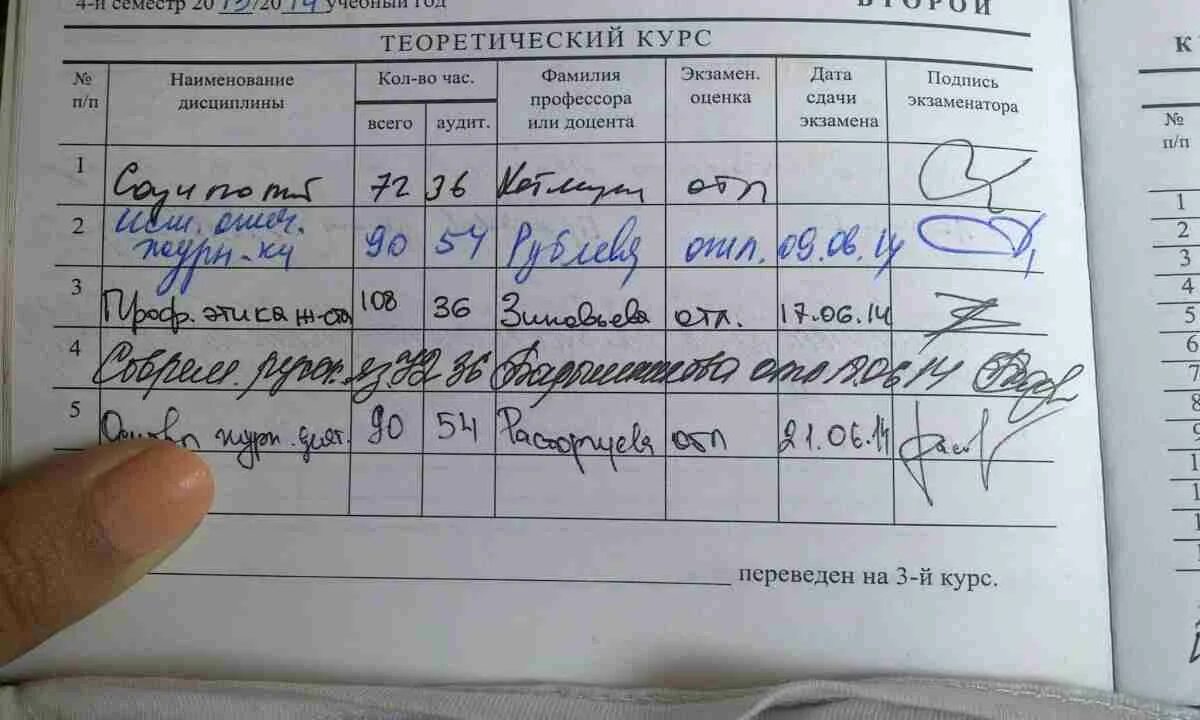 4-й семестр 2013/2014 учебный год ВТОРОЙ
ТЕОРЕТИЧЕСКИЙ КУРС
№ п/п Наименование дисциплины Кол-во час. всего аудит. Фамилия профессора или доцента Экзамен. оценка Дата сдачи экзамена Подпись экзаменатора
1 72 36 отл
2 ист. отеч. журн-ки 90 54 Рублева отл. 09.06.14
3 Проф. этика ж-ста 108 36 Зиновьева отл. 17.06.14
4 Соврем. русск. яз. 72 36 отл 06 14
5 Основы журн. деят. 90 54 Расторгуева отл 21.06.14
переведен на 3-й курс.
К
№ п/п
1
2
3
4
5
6
7
8
9